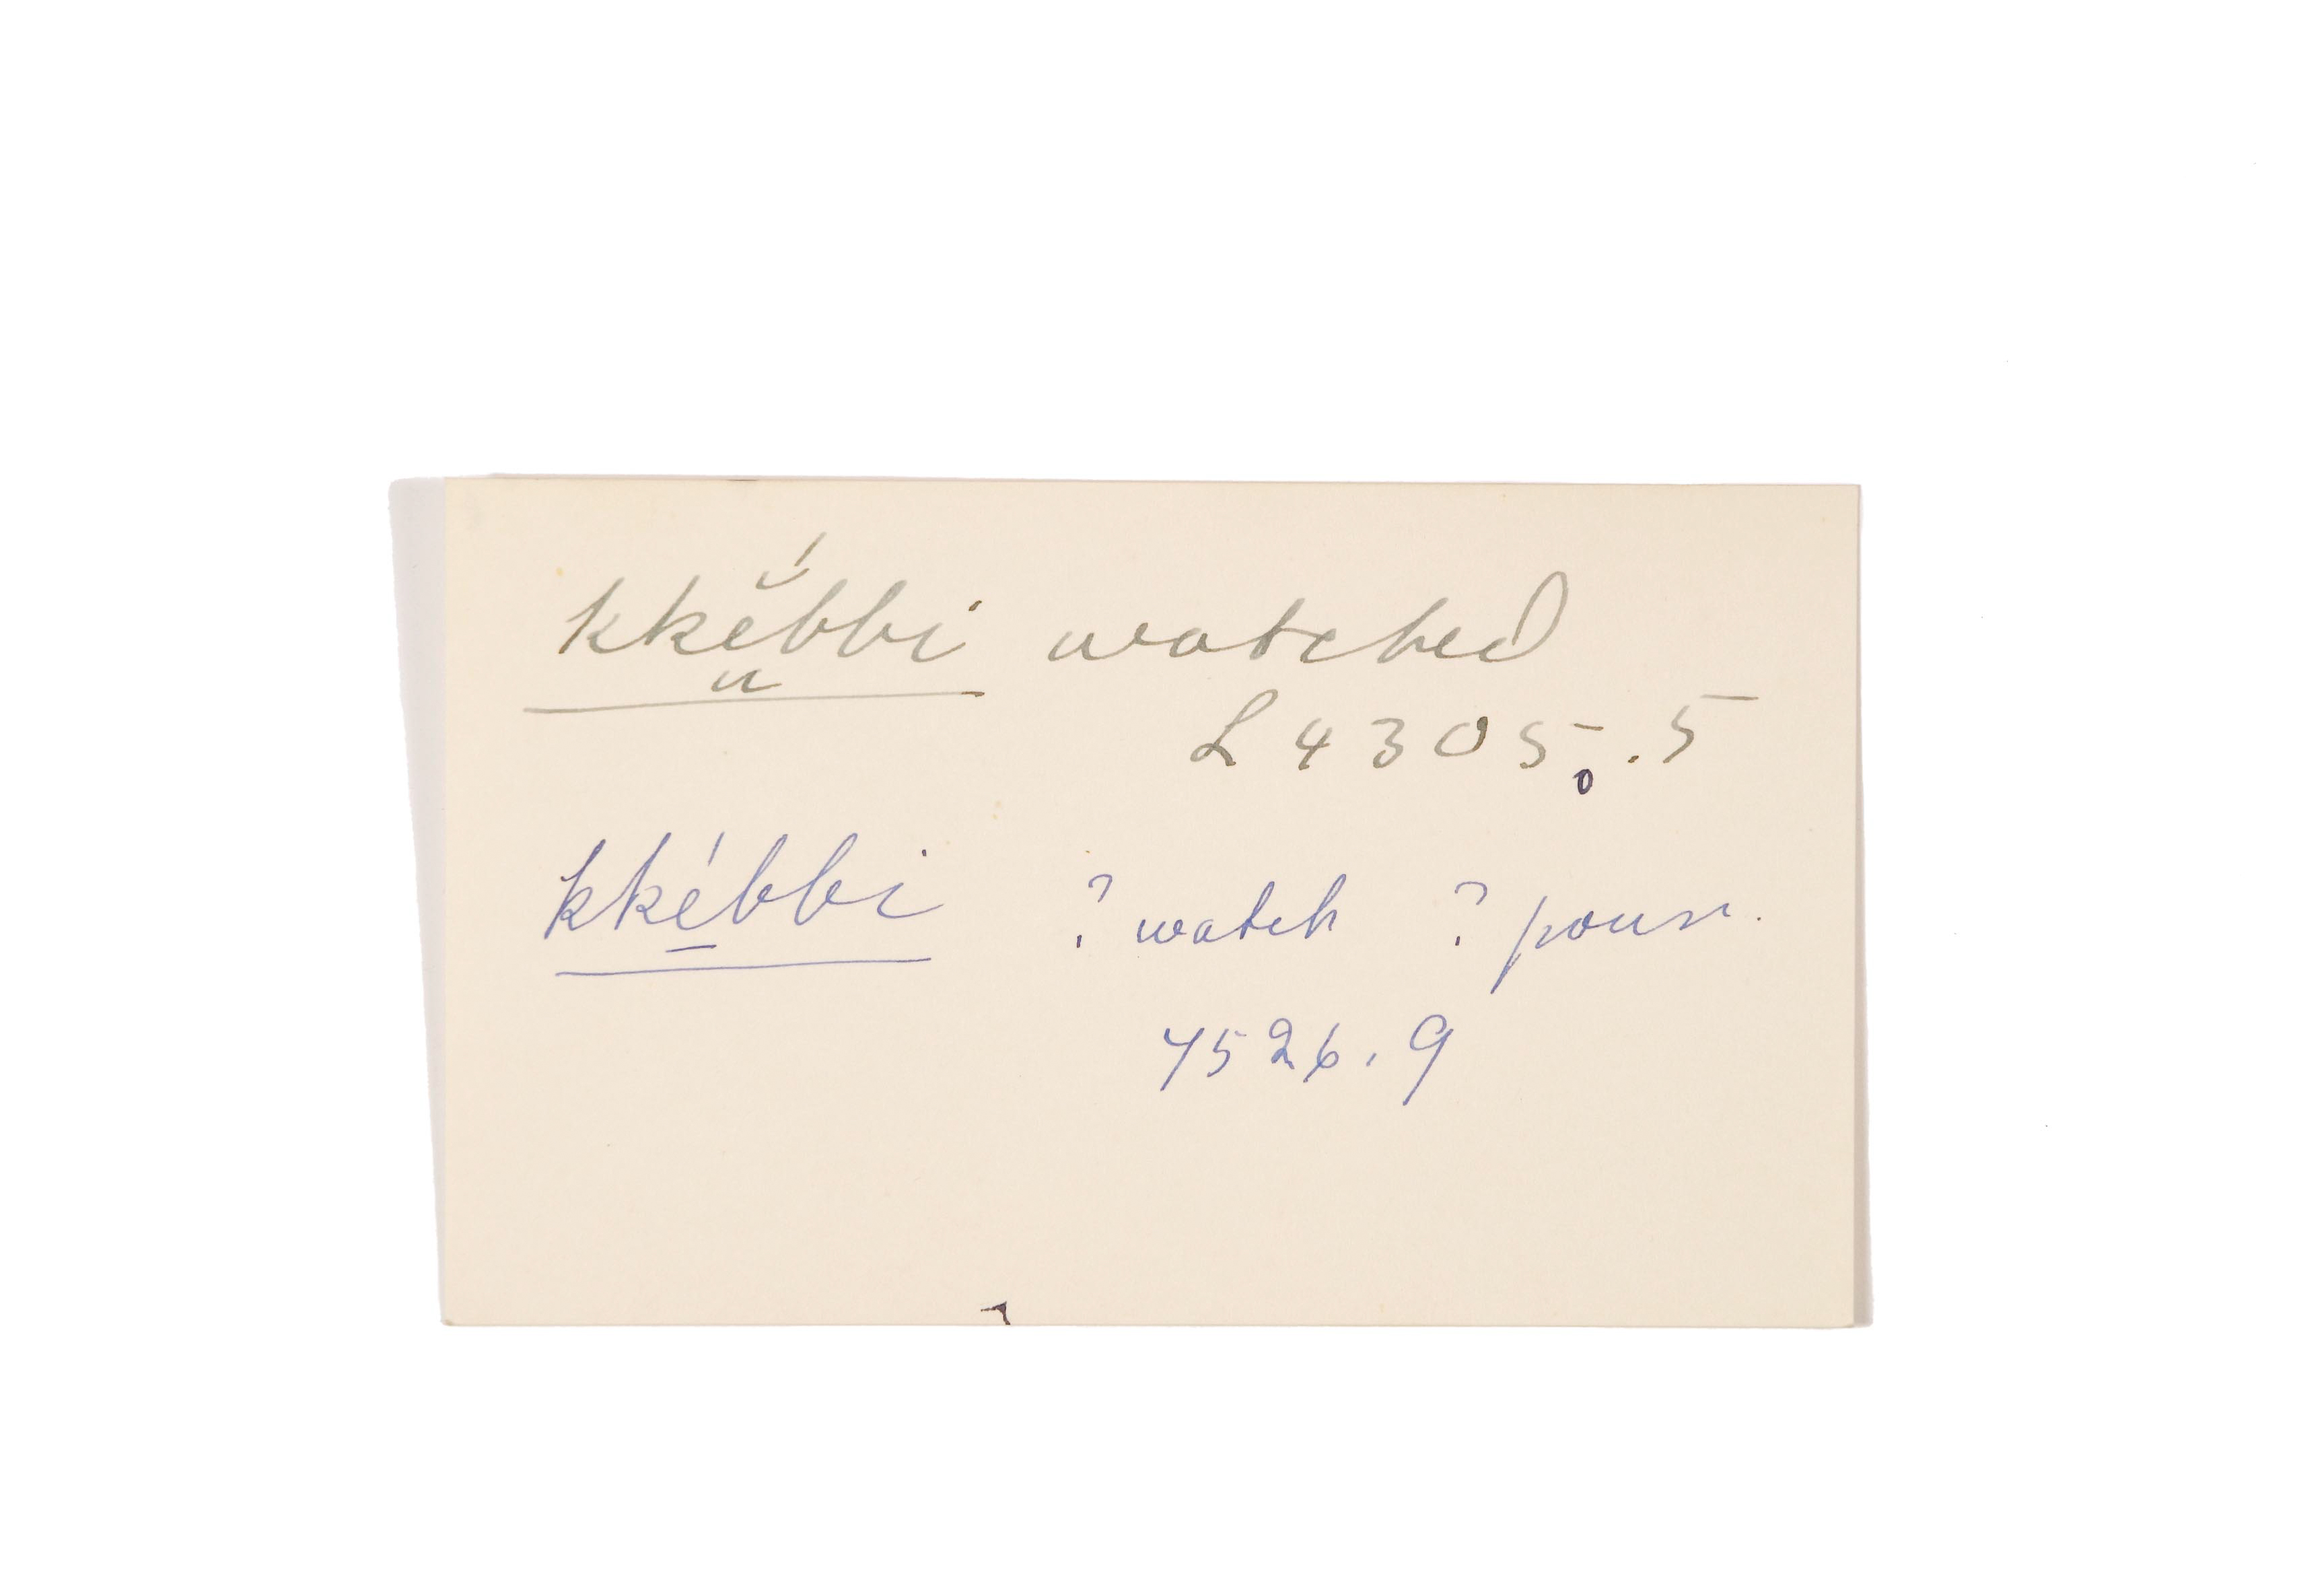 kkĕ́bbi watched
L 4305.5
kké̱bbi ? watch ? pour.
7526.9